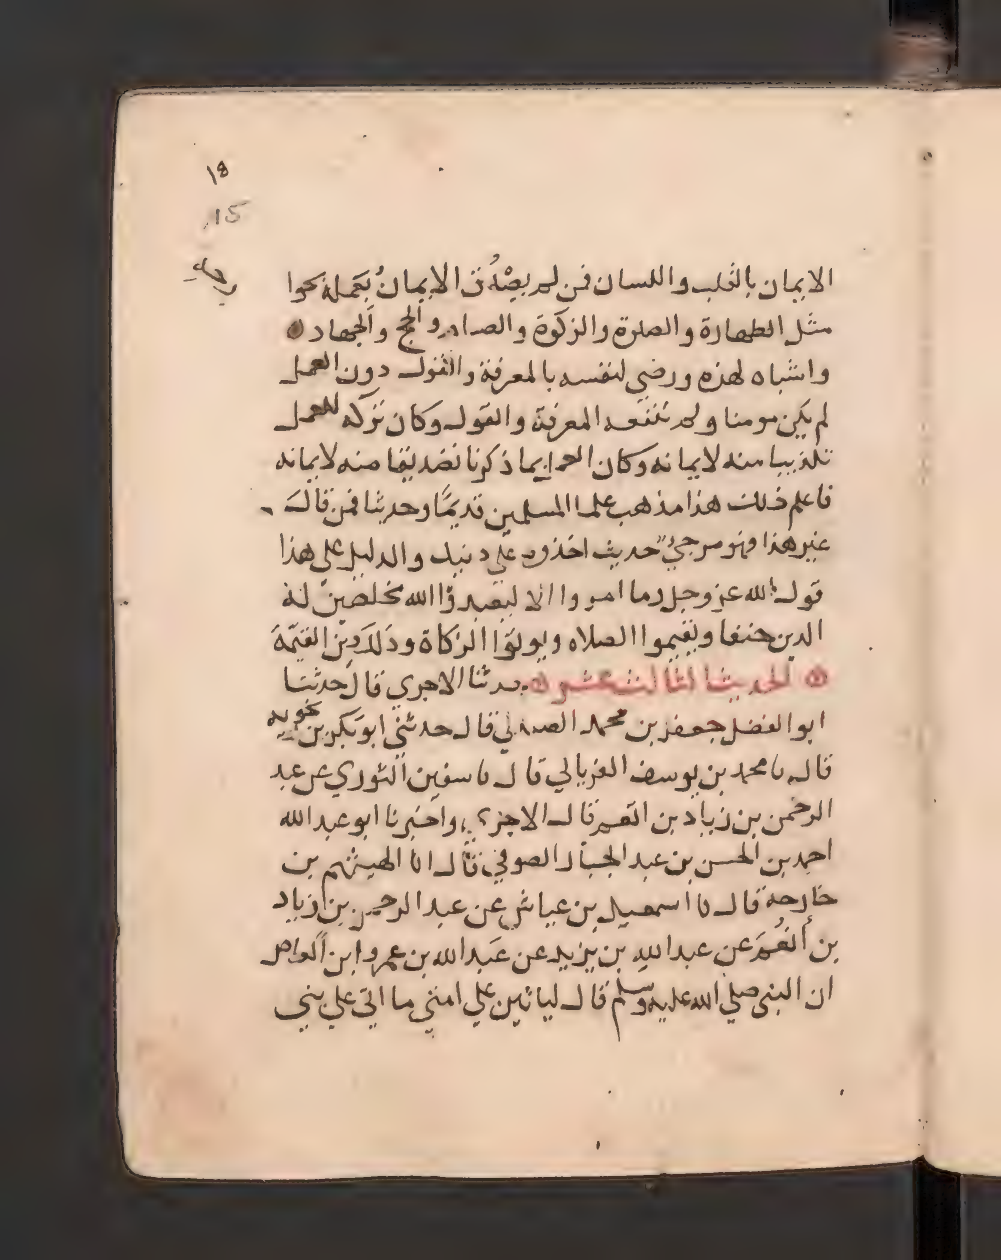 ١٥
15
الايمان بالقلب واللسان فمن لم يصدق الايمان بعمله نحوا
مثل الطهارة والصلوة والزكوة والصيام والحج والجهاد
واشباه لهذه ورضي لنفسه بالمعرفة والقول دون العمل
لم يكن مومنا ولم تنفعه المعرفة والقول وكان تركه للعمل
تكذيبا منه لايمانه وكان العمل بما ذكرنا تصديقا منه لايمانه
فاعلم ذلك هذا مذهب علما المسلمين قديما وحديثا فمن قال
غير هذا فهو مرجئ حديث احذره على دينك والدليل على هذا
قول الله عز وجل وما امروا الا ليعبدوا الله مخلصين له
الدين حنفا ويقيموا الصلاه ويوتوا الزكاة وذلك دين القيمة
الحديث الثالث عشر حدثنا الاجري قال حدثنا
ابو الفضل جعفر بن محمد الصندلي قال حدثني ابو بكر بن زنجويه
قال نا محمد بن يوسف الفريابي قال نا سفين الثوري عن عبد
الرحمن بن زياد بن انعم قال الاجري واخبرنا ابو عبد الله
احمد بن الحسن بن عبد الجبار الصوفي قال انا الهيثم بن
خارجة قال نا اسمعيل بن عياش عن عبد الرحمن بن زياد
بن انعم عن عبد الله بن يزيد عن عبد الله بن عمرو ابن العاص
ان النبي صلي الله عليه وسلم قال لياتين علي امتي ما اتى علي بني